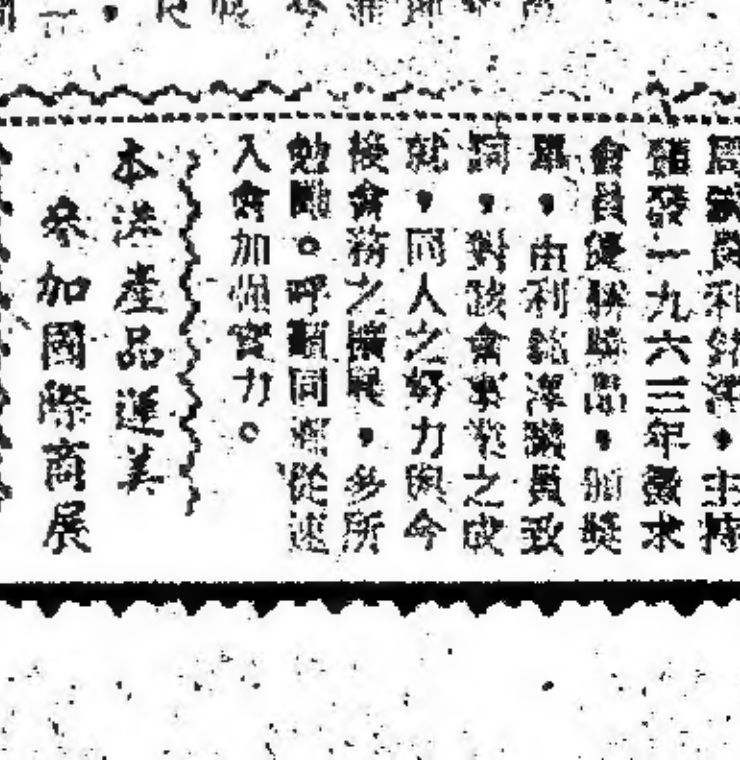 利銘澤，主持
頒發一九六三年徵求
會員優勝錦標，頒獎
畢，由利銘澤議員致
詞，對該會事業之成
就，同人之努力與今
後會務之擴展，多所
勉勵。呼籲同業從速
入會加強實力。
本港產品運美
參加國際商展